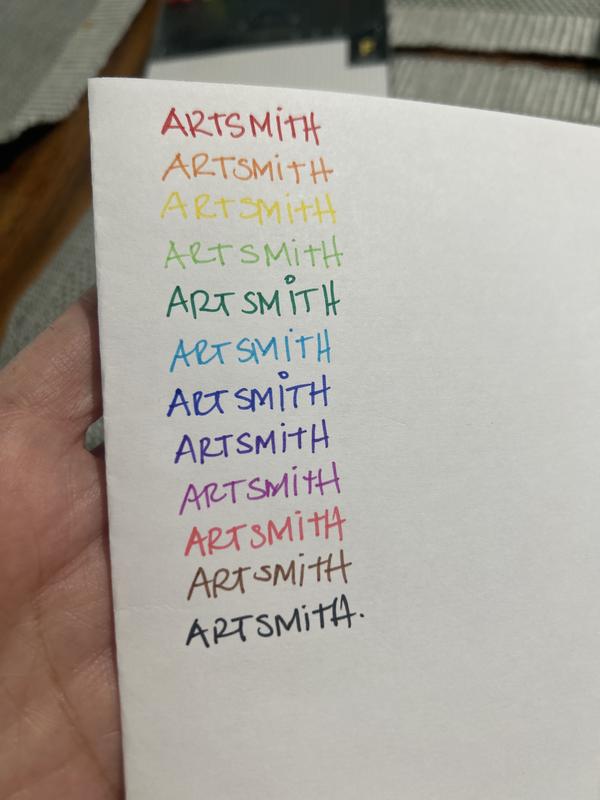 ARTSMiTH
ARTSMiTH
ARTSMiTH
ARTSMiTH
ARTSMiTH
ARTSMiTH
ARTSMiTH
ARTSMiTH
ARTSMiTH
ARTSMiTH
ARTSMiTH
ARTSMiTH.